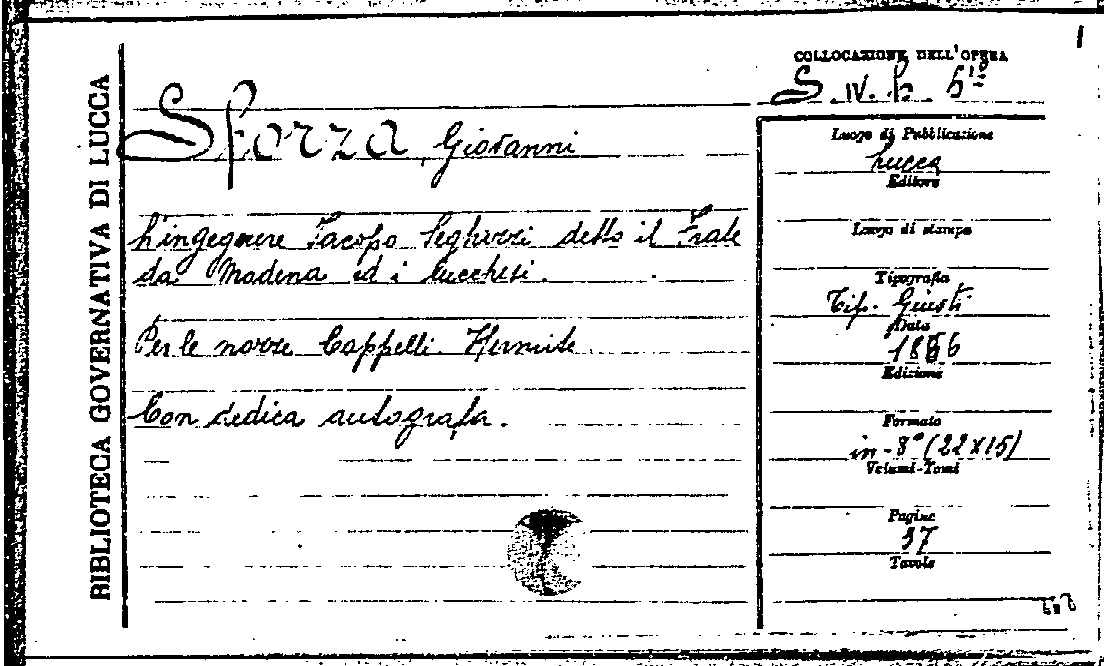 BIBLIOTECA GOVERNATIVA DI LUCCA
COLLOCAZIONE DELL'OPERA
1
S. IV. b.
Sforza, Giovanni
L'ingegnere Jacopo Seghizzi detto il Frate
da Modena ed i Lucchesi.
Per le nozze Cappelli Hermite
Con dedica autografa.
Luogo di Pubblicazione
Lucca
Editore
Luogo di stampa
Tipografia
Tip. Giusti
Data
Edizione
Formato
in-8° (22x15)
Volumi-Tomi
Pagine
37
Tavole